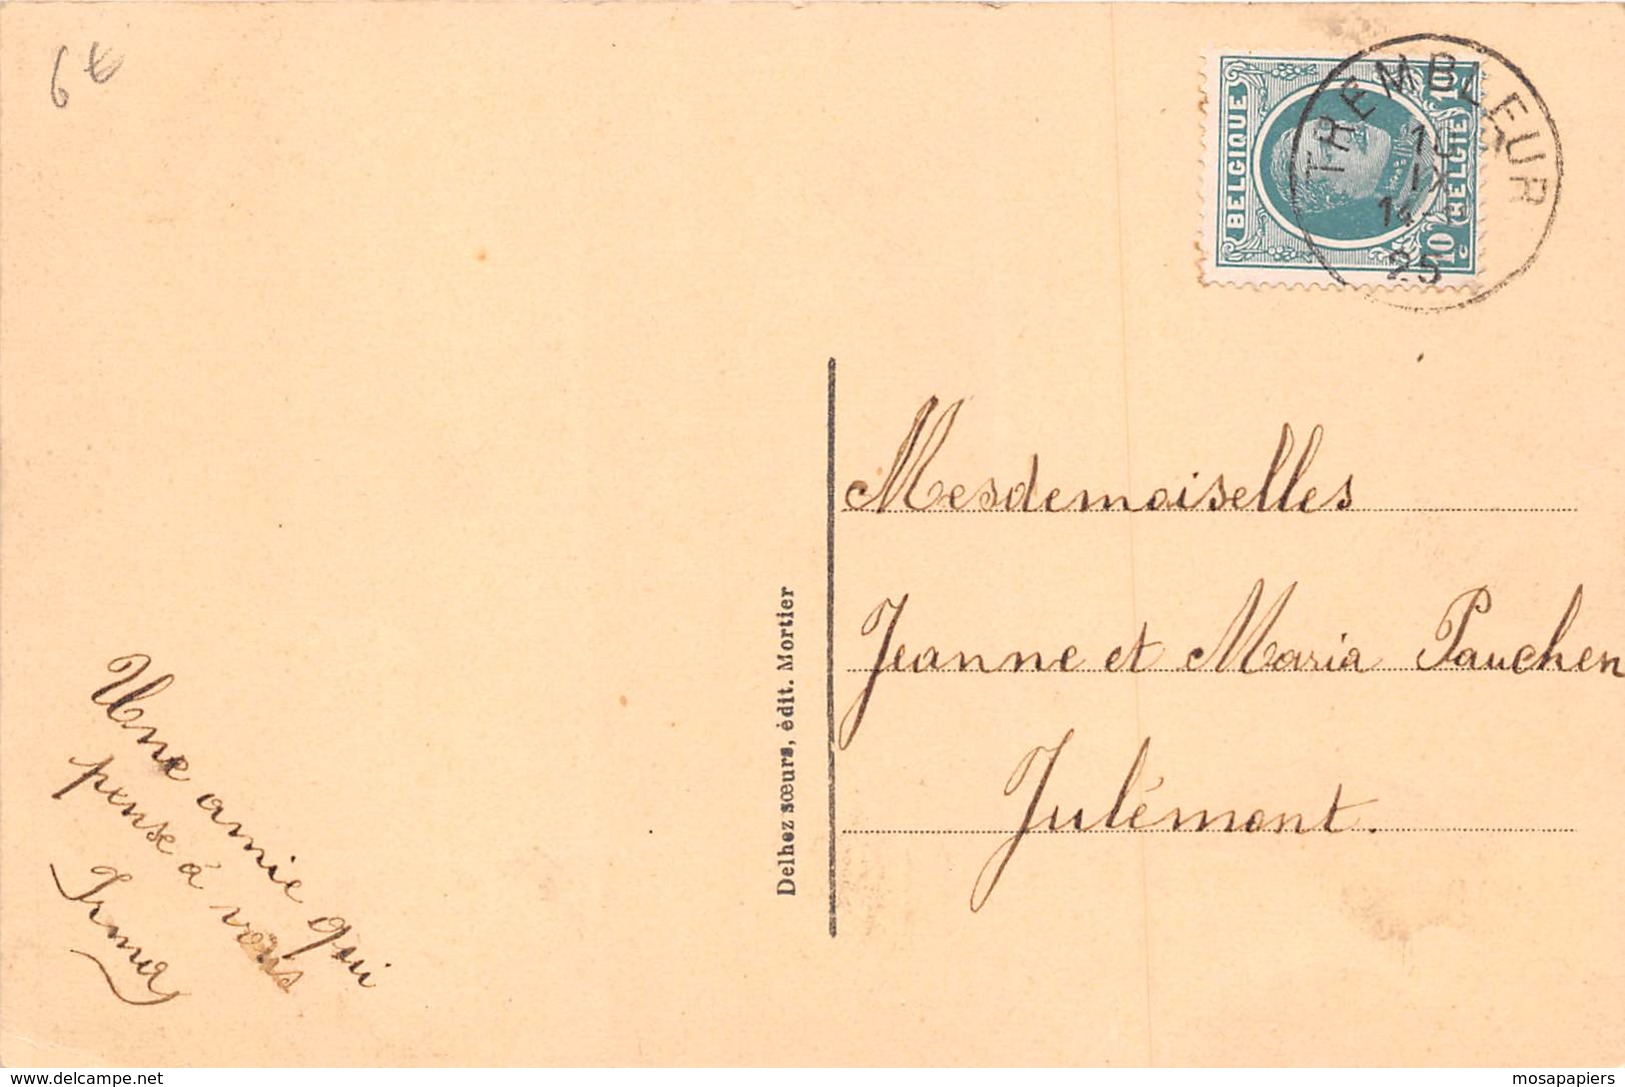 6 €
TREMBLEUR
IX
25
BELGIQUE
BELGIE
10 c
Mesdemoiselles
Jeanne et Maria Pauchen
Julémont.
Delhez sœurs, édit. Mortier
Une amie qui
pense à vous
Irma
www.delcampe.net
mosapapiers